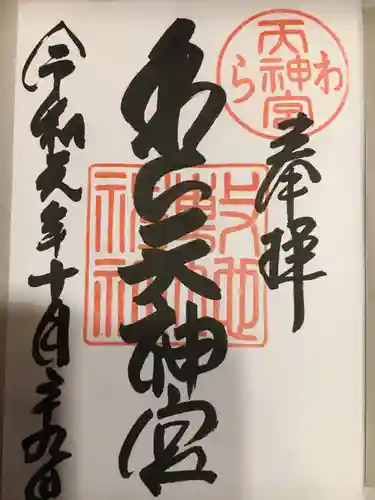 奉拝
天神宮
わら
天神宮
敷地神社
令和元年十月二十九日